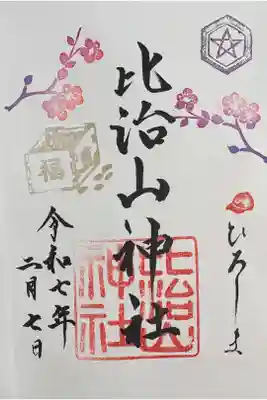 ひろしま
比治山神社
比治山
神社
福
令和七年
二月七日